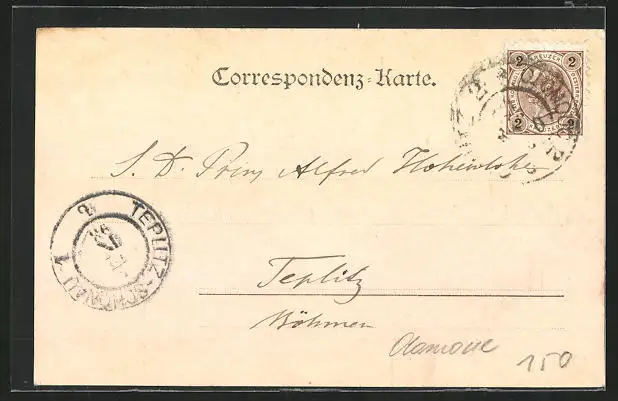 Correspondenz-Karte.
2 KREUZER 2
2 2
S. D. Prinz Alfred Hohenlohe
TEPLITZ-SCHÖNAU 1
Teplitz
Böhmen
150